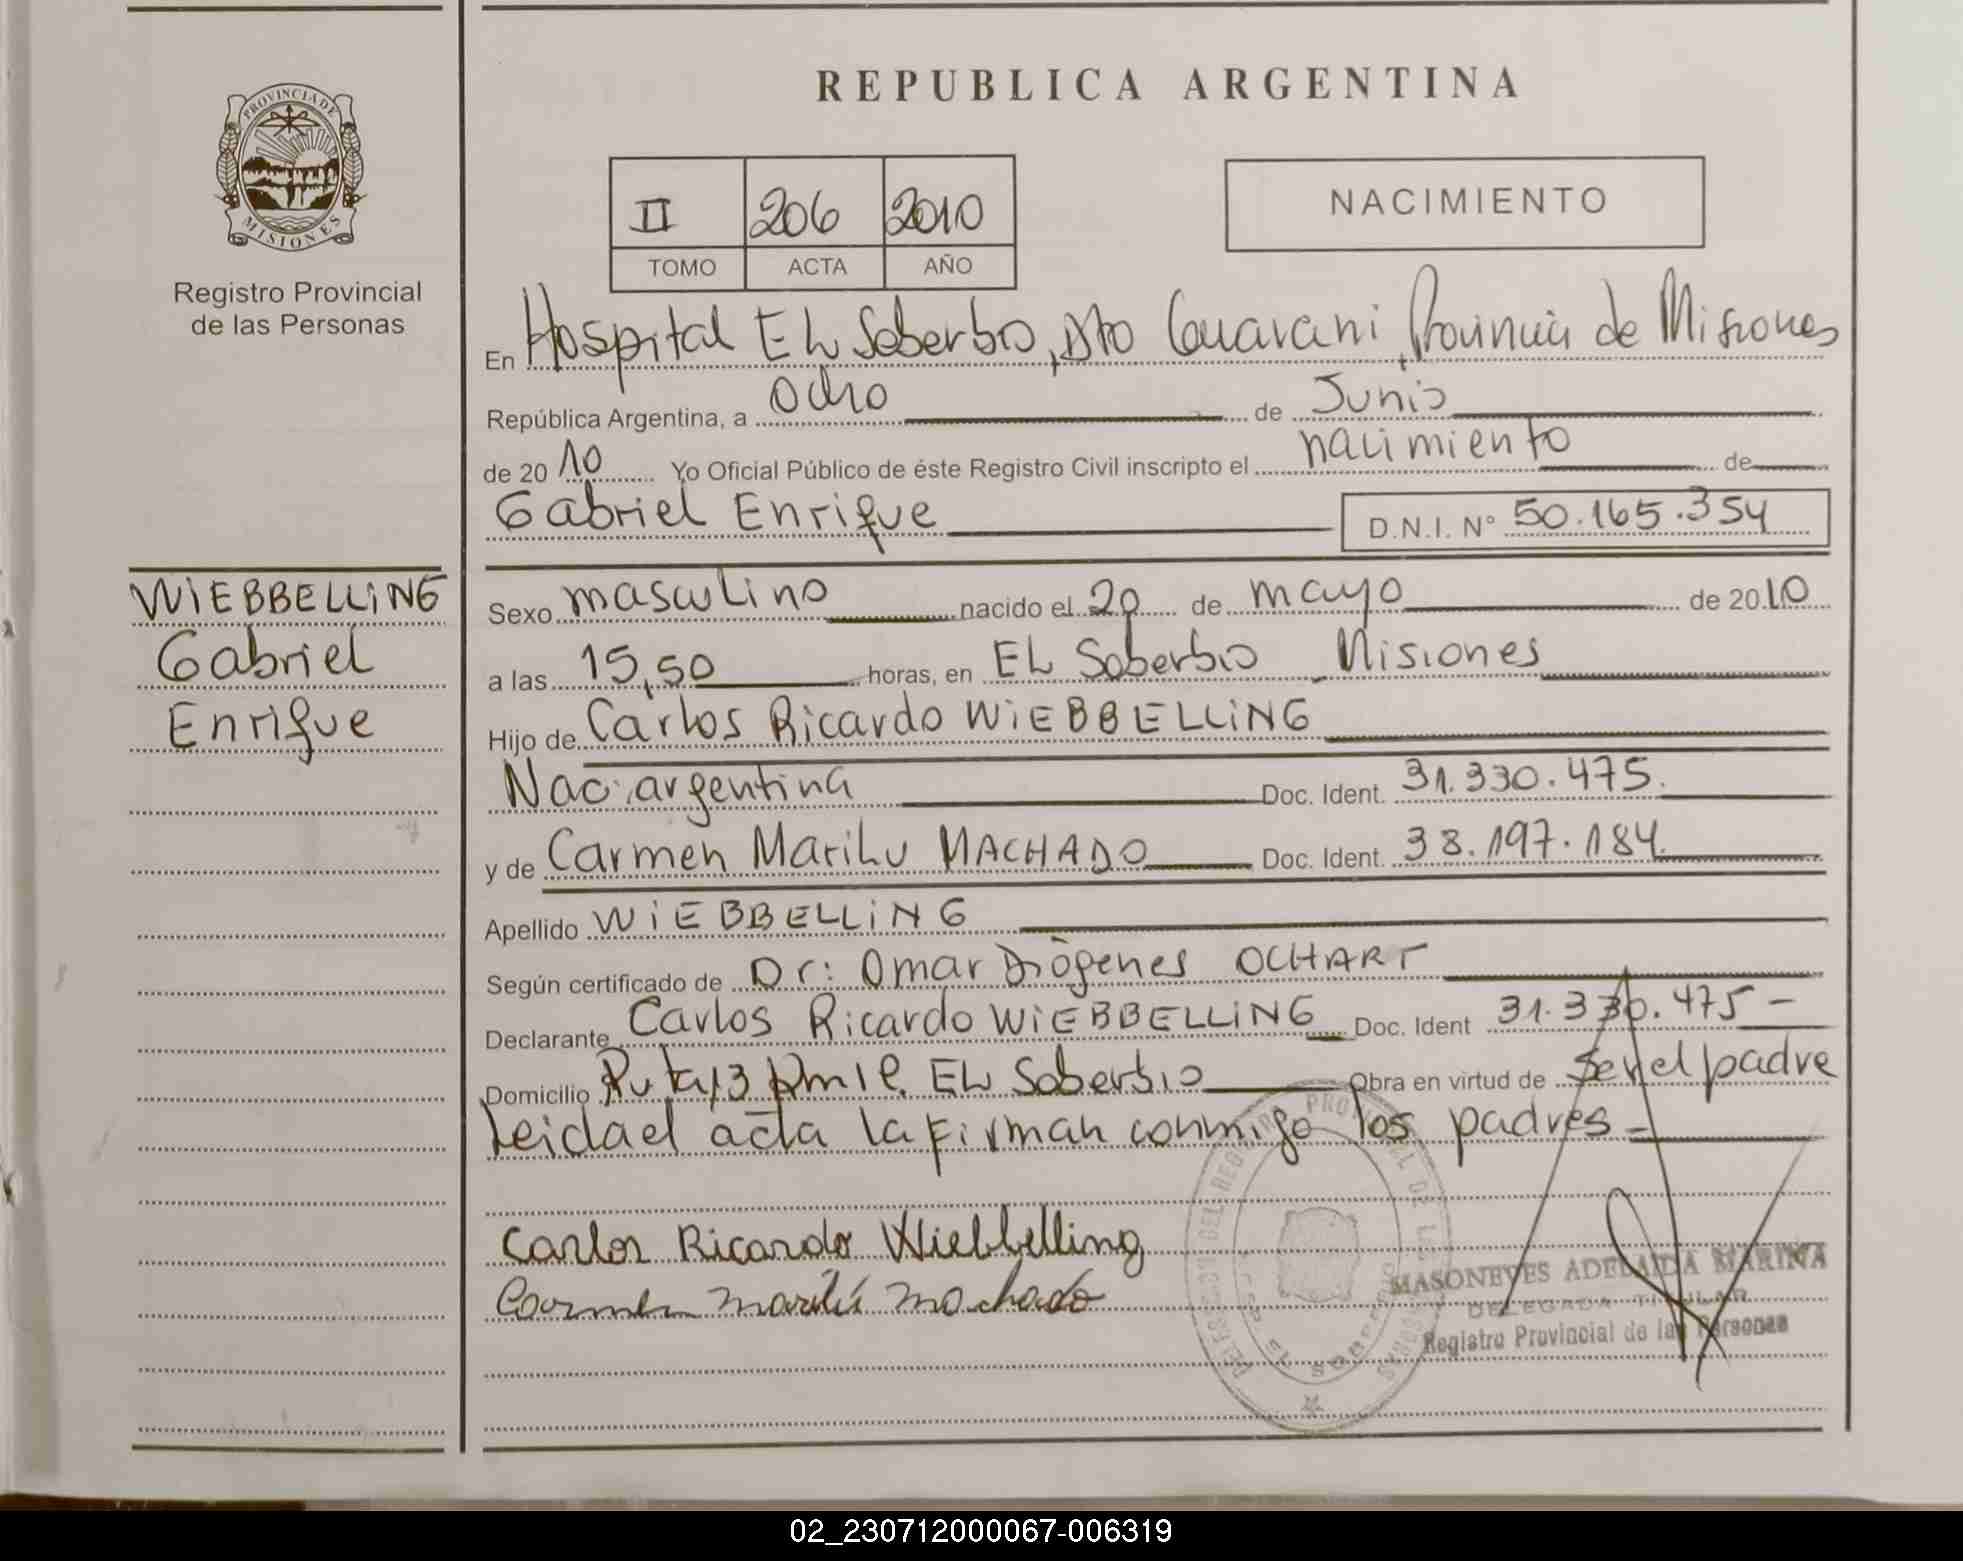 REPUBLICA ARGENTINA
PROVINCIA DE
MISIONES
Registro Provincial
de las Personas
II 206 2010
TOMO ACTA AÑO
NACIMIENTO
En Hospital EL Soberbio, Dto Guarani, Provincia de Misiones
República Argentina, a ocho de Junio
de 2010 Yo Oficial Público de éste Registro Civil inscripto el nacimiento de
Gabriel Enrique D.N.I. N° 50.165.354
WIEBBELLING
Gabriel
Enrique
Sexo masculino nacido el 20 de mayo de 2010
a las 15,50 horas, en EL Soberbio Misiones
Hijo de Carlos Ricardo WIEBBELLING
Nac: argentina Doc. Ident. 31.330.475.
y de Carmen MariLu MACHADO Doc. Ident. 38.197.184.
Apellido WIEBBELLING
Según certificado de Dr: Omar Diògenes OCHART
Declarante Carlos Ricardo WIEBBELLING Doc. Ident 31.330.475-
Domicilio Ruta 13 Km 18. EL Soberbio Obra en virtud de ser el padre
Leida el acta la firman conmigo los padres-
Carlos Ricardo Wiebbelling
Carmen marilú machado
MASONEVES ADELAIDA MARINA
DELEGADA TITULAR
Registro Provincial de las Personas
02_230712000067-006319